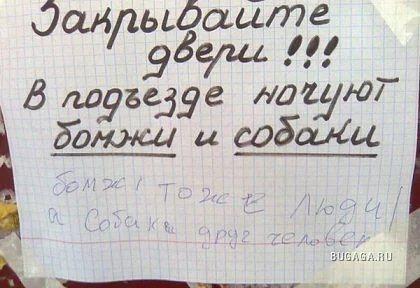 Закрывайте
двери!!!
В подъезде ночуют
бомжи и собаки
бомжи тоже люди!
а собака друг человек
BUGAGA.RU